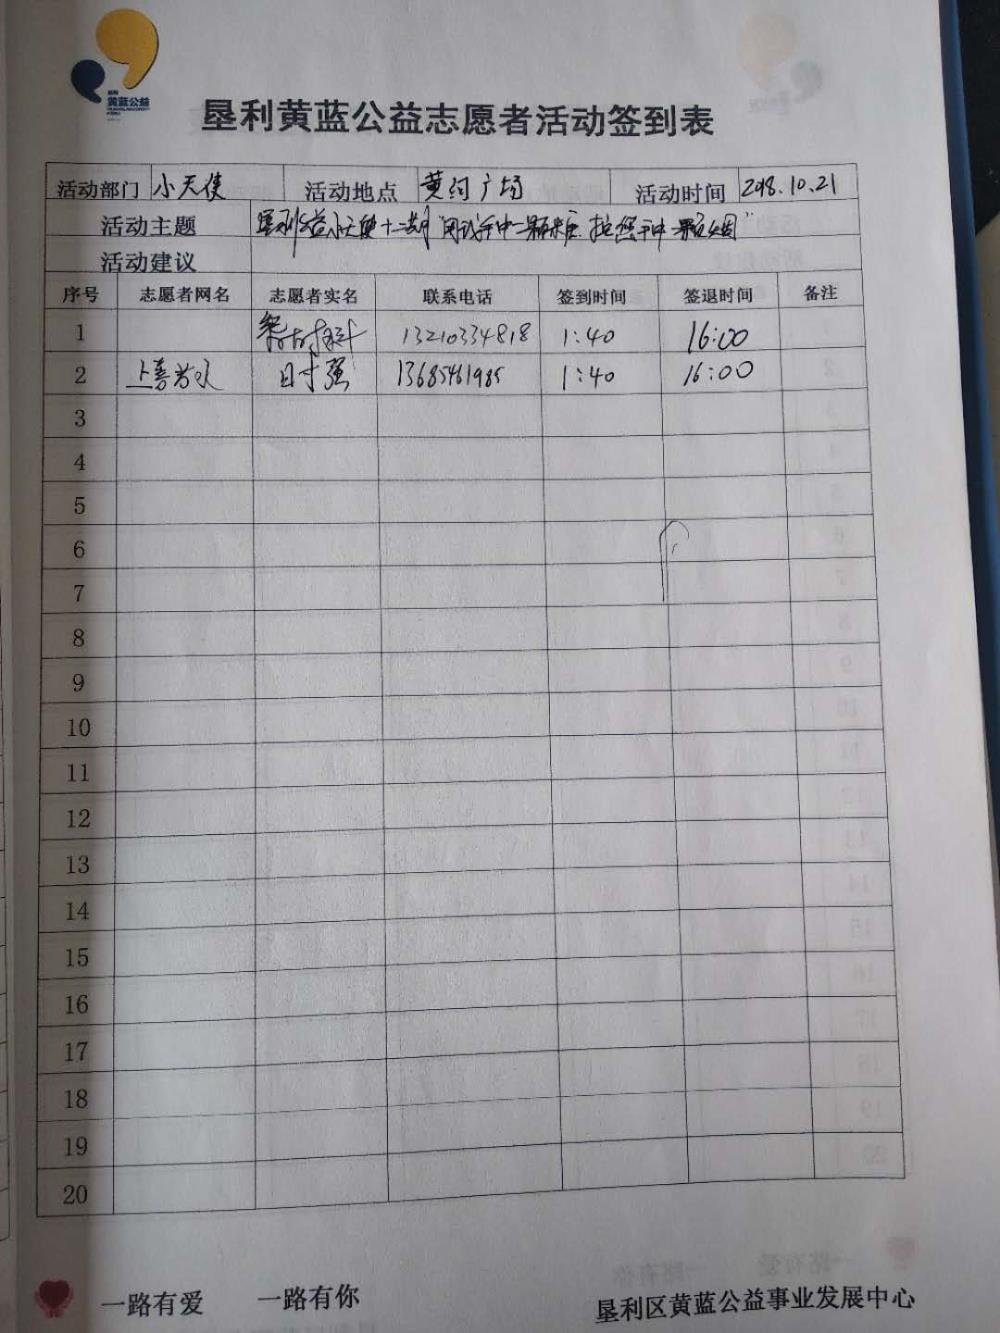 黄蓝公益
垦利黄蓝公益志愿者活动签到表
活动部门 小天使 活动地点 黄河广场 活动时间 2018.10.21
活动主题 垦利公益小天使十二期"用我手中一颗糖 换您手中一颗烟"
活动建议
序号 志愿者网名 志愿者实名 联系电话 签到时间 签退时间 备注
1 13210334818 1:40 16:00
2 上善若水 强 13685461985 1:40 16:00
3
4
5
6
7
8
9
10
11
12
13
14
15
16
17
18
19
20
一路有爱 一路有你 垦利区黄蓝公益事业发展中心